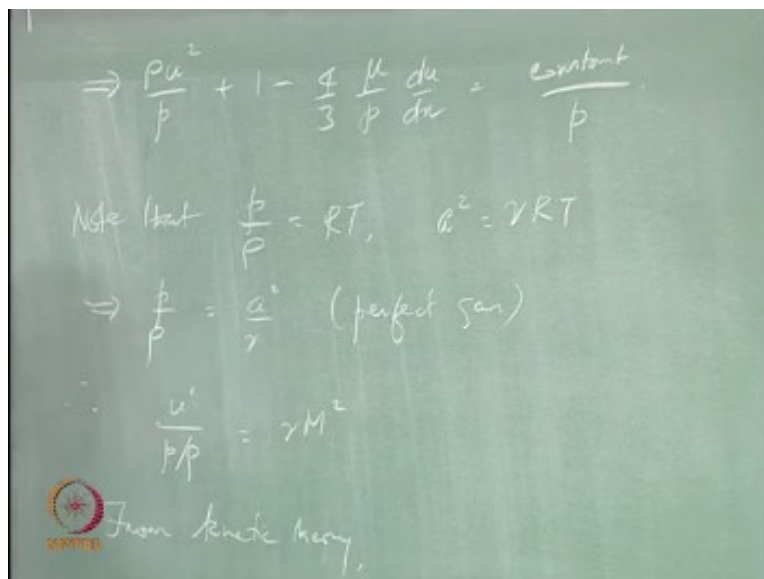 ⇒ ρu²/p + 1 - 4/3 μ/p du/dx = constant/p.
Note that p/ρ = RT, a² = γRT
⇒ p/ρ = a²/γ (perfect gas)
∴ u²/p/ρ = γM²
From kinetic theory,
NPTEL